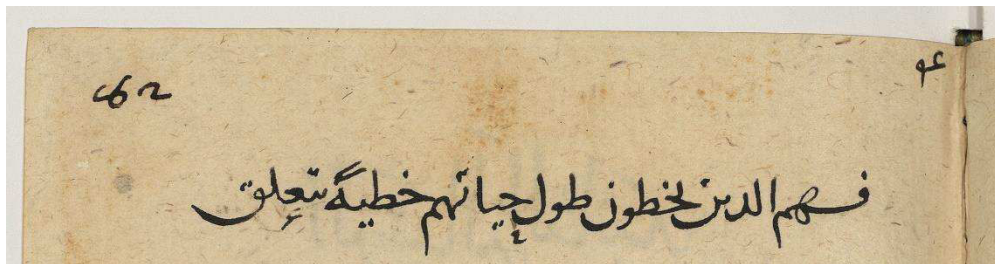 فسهم الدين يخطون طول حياتهم خطية تتعلق